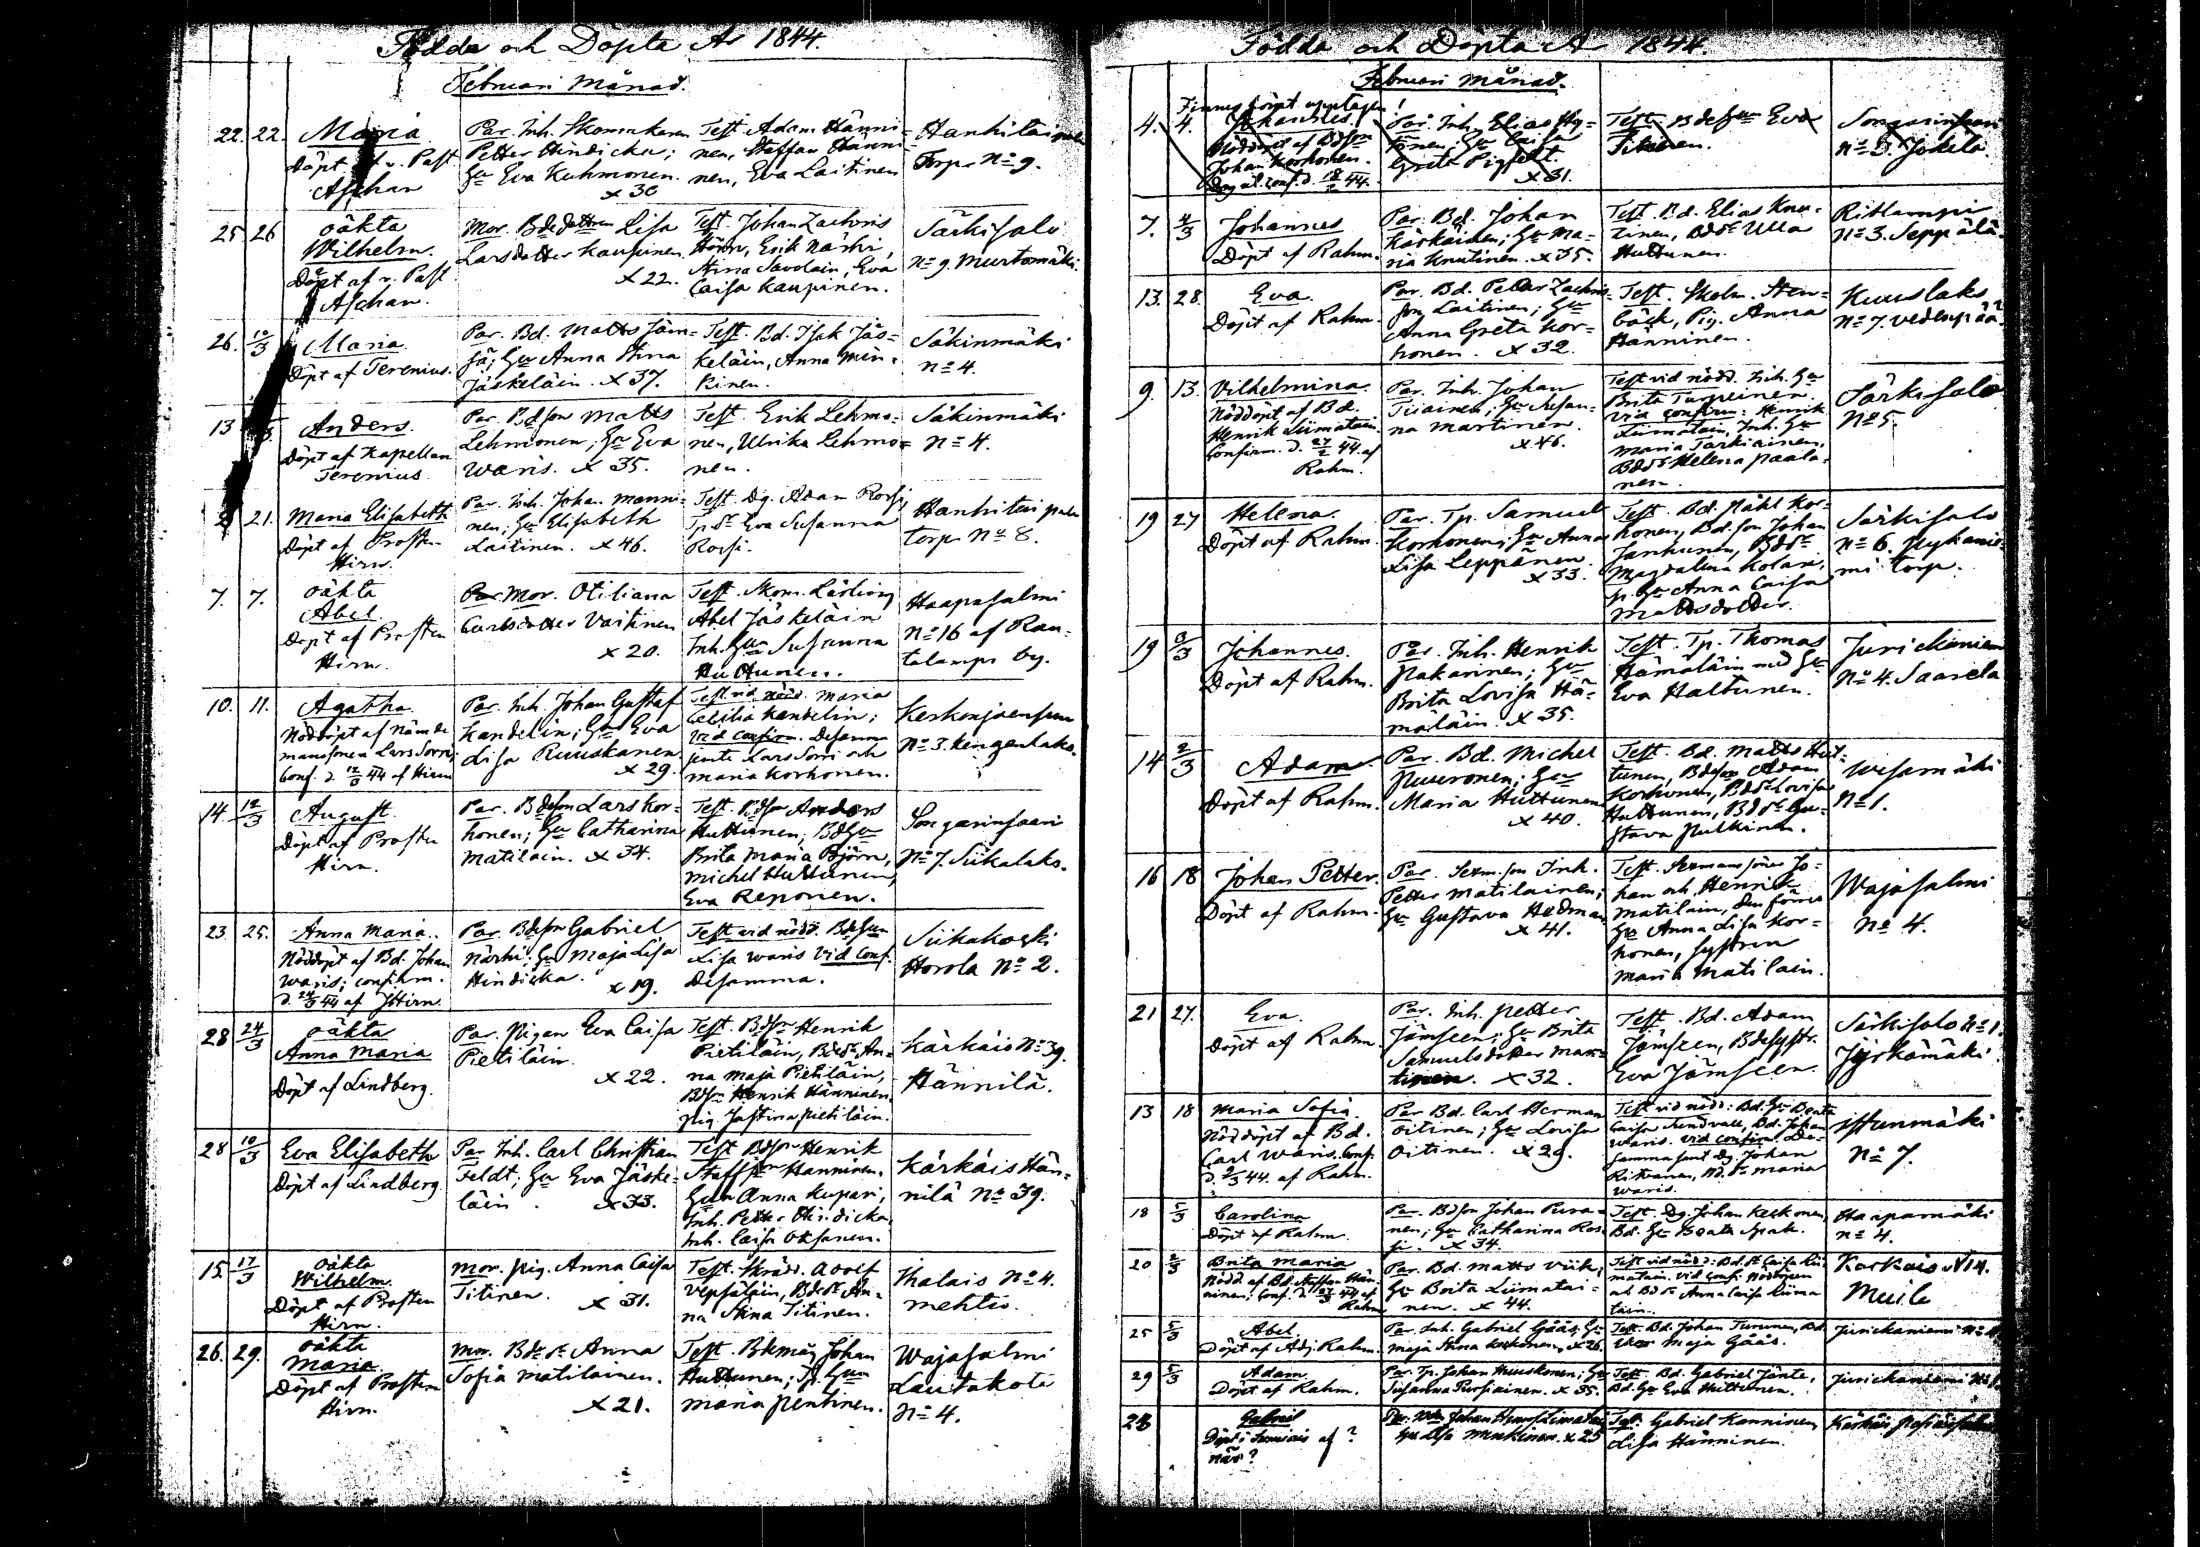 Födda och Döpta År 1844.
Februari Månad.
22. 22. Maria
Döpt af v. Past
Aschan
Par. Inh. Skomakaren
Petter Hindicka;
Hu Eva Kuhmonen.
x 30
Test. Adam Hänni-
nen, Staffan Hänni-
nen, Eva Laitinen
Hankitaipale
Torp. No 9.
25 26 oäkta
Wilhelm.
Döpt af v. Past
Aschan.
Mor. Bdedottren Lisa
Larsdotter Kaupinen
x 22.
Test. Johan Zachris
Björn, Erik Närhi,
Stina Savolain, Eva
Caisa Kaupinen.
Särkisalo
No 9. Murtomäki.
26. 10/3 Maria.
Döpt af Terenius.
Par. Bd. Matts Jäm-
sä; Hu Anna Stina
Jäskeläin. x 37.
Test. Bd. Isak Jäs-
keläin, Anna Min-
kinen.
Säkinmäki
No 4.
13 /3 Anders.
Döpt af Kapellan
Terenius
Par. Bdson Matts
Lehmonen; Hu Eva
Waris. x 35.
Test. Erik Lehmo-
nen, Ulrika Lehmo-
nen.
Säkinmäki
No 4.
21. Maria Elisabeth
Döpt af Prosten
Hirn.
Par. Inh. Johan Manni-
nen; Hu Elisabeth
Laitinen. x 46.
Test. Dg. Adam Rossi,
Tp. dr Eva Susanna
Rossi.
Hankitaipale
torp No 8.
7. 7. oäkta
Abel
Döpt af Prosten
Hirn.
Mor. Otiliana
Carlsdotter Vaitinen
x 20.
Test. Skom. Lärling
Abel Jäskeläin
Inh. Hu Susanna
Huttunen.
Haapasalmi
No 16 af Rau-
talampi by.
10. 11. Agatha.
Nöddöpt af Nämde
mansonen Lars Sorri;
Conf. d. 12/3 44 af Hirn
Par. Inh. Johan Gustaf
Kandelin; Hu Eva
Lisa Ruuskanen
x 29.
Test. vid nöd. Maria
Cecilia Kandelin;
Vid Confirm. Desamma
jemte Lars Sorri och
Maria Korhonen.
Kerkonjoensuu
No 3. Kengenlaks.
14. 12/3 August.
Döpt af Prosten
Hirn.
Par. Bdeson Lars Kor-
honen; Hu Catharina
Matilain. x 34.
Test. Bdson Anders
Huttunen, Bd Hu
Brita Maria Björn,
Michel Huttunen,
Eva Reponen.
Songarinsaari
No 7. Siikalaks.
23. 25. Anna Maria.
Nöddöpt af Bd. Johan
Waris; confirm.
d. 24/3 44 af Hirn.
Par. Bdeson Gabriel
Närhi; Hu Maja Lisa
Hindicka.
x 19.
Test. vid nöd. Bde Hu
Lisa Waris Vid Conf.
Desamma.
Siikakoski
Horola No 2.
28 24/3 oäkta
Anna Maria
Döpt af Lindberg.
Par. Pigan Eva Caisa
Pietiläin.
x 22.
Test. Bdson Henrik
Pietiläin, Bde dr An-
na Maja Pietiläin,
Bdson Henrik Hänninen
pig Justina Pietiläin.
Kärkäis No 39.
Hännilä.
28 10/3 Eva Elisabeth
Döpt af Lindberg
Par. Inh. Carl Christian
Feldt; Hu Eva Jäske-
läin. x 33.
Test. Bdson Henrik
Staffson Hänninen.
Hu Anna Kupari,
Inh. Petter Hindicka
Inh. Caisa Oksanen.
Kärkäis Hän-
nilä No 39.
15. 17/3 oäkta
Wilhelm.
Döpt af Prosten
Hirn.
Mor. pig. Anna Caisa
Titinen.
x 31.
Test. Skräd. Adolf
Vepsäläin, Bde dr An-
na Stina Titinen.
Thalais No 4.
Mehtio.
26. 29. oäkta
Maria.
Döpt af Prosten
Hirn.
Mor. Bde dr Anna
Sofia Matilainen.
x 21.
Test. Johan
Huttunen; Tp. Hun
Maria Pentinen.
Wajasalmi
Lautakota
No 4.
Födda och Döpta År 1844.
Februari Månad.
Finnes förut upptagen!
4. 4. Johannes.
Nöddöpt af Bdson
Johan Korhonen.
conf. d. 18/2 44.
Par. Inh. Elias Hy-
tönen; Hu Caisa
Greta Pigg
x 31.
Test. Bde Hu Eva
Titinen.
Songarinsaari
No 3. Jokela.
7. 4/3 Johannes
Döpt af Rahm.
Par. Bd. Johan
Kärkäinen; Hu Ma-
ria Knutinen. x 35.
Test. Bd. Elias Knu-
tinen, Bd dr Ulla
Huttunen.
Ritlampi
No 3. Seppälä
13. 28. Eva
Döpt af Rahm.
Par. Bd. Petter Zachris-
son Laitinen; Hu
Anna Greta Kor-
honen. x 32.
Test. Skolm. Sten-
bäck, Pig. Anna
Hänninen.
Kuuslaks
No 7. Vedenpää.
9. 13. Vilhelmina.
Nöddöpt af Bd.
Henrik Liimatain.
Confirm. d. 27/2 44. af
Rahm.
Par. Inh. Johan
Tiiainen; Hu Susan-
na Martinen.
x 46.
Test vid nöd. Inh. Hu
Brita Turpeinen.
Vid confirm: Henrik
Liimatain, Inh. Hu
Maria Tarkiainen,
Bd dr Helena Paala-
nen.
Särkisalo
No 5.
19 27 Helena.
Döpt af Rahm.
Par. Tp. Samuel
Korhonen; Hu Anna
Lisa Leppänen
x 33.
Test. Bd. Påhl Kor-
honen, Bd. son Johan
Janhunen, Bd dr
Magdalena Kolari,
p. Hu Anna Caisa
Mattsdotter.
Särkisalo
No 6. Pyykönie-
mi torp.
19 3/3 Johannes.
Döpt af Rahm.
Par. Inh. Henrik
Pakarinen; Hu
Brita Lovisa Hä-
mäläin. x 35.
Test. Tp. Thomas
Hämäläin med Hu
Eva Haltunen.
Jurickoniemi
No 4. Saarela
14 2/3 Adam
Döpt af Rahm.
Par. Bd. Michel
Puuronen; Hu
Maria Huttunen
x 40.
Test. Bd. Matts Hut-
tunen, Bdson Adam
Korhonen, Bd dr Lovisa
Huttunen, Bd dr Gu-
stava Pulkinen.
Wesamäki
No 1.
16 18 Johan Petter.
Döpt af Rahm.
Par. Sexm. son Inh.
Petter Matilainen;
Hu Gustava Hedman
x 41.
Test. Sexmans söner Jo-
han och Henrik
Matilain, den förres
Hu Anna Lisa Kor-
honen, systren
Maria Matilain.
Wajasalmi
No 4.
21 27. Eva.
Döpt af Rahm.
Par. Inh. Petter
Jämseen; Hu Brita
Samuelsdotter Mar-
tinen. x 32.
Test. Bd. Adam
Jämseen, Bdesystr.
Eva Jämseen
Särkisalo No 1.
Jyrkämäki.
13 18 Maria Sofia.
Nöddöpt af Bd.
Carl Waris. Conf.
d. 2/3 44. af Rahm.
Par Bd. Carl Herman
Oitinen; Hu Lovisa
Oitinen. x 29.
Test vid nöd: Bd. Hu Beata
Caisa Sundvall, Bd. Johan
Waris. Vid confirm. De-
samma samt Dg. Johan
Ritvanen, Bd. dr Maria
Waris.
Istunmäki
No 7.
18 5/3 Carolina
Döpt af Rahm.
Par. Bdson Johan Pura-
nen; Hu Catharina Ros-
si. x 34.
Test. Dg. Johan Kerkonen,
Bd. Hu Beata Spak.
Haapamäki
No 4.
20 2/3 Brita Maria
Nödd. af Bd. Staffan Hän-
ninen; Conf. d. af
Rahm
Par. Bd. Matts Viik;
Hu Brita Liimatai-
nen. x 44.
Test vid nöd: Bd. dr Caisa Lii-
matain. Vid conf. Nöddöparen
och Bd dr Anna Caisa Liima
tain.
Kärkäis N 14.
Muile
25 5/3 Abel
Döpt af Adj. Rahm.
Par. Inh. Gabriel Gääs; Hu
Maja Stina Kerkonen, x 26.
Test. Bd. Johan Turunen, Bd.
Maja Gääs.
Jurickoniemi No
29 5/3 Adam
Döpt af Rahm.
Par. Tp. Johan Huuskonen; Hu
Susanna Pursiainen. x 35.
Test. Bd. Gabriel Jänte,
Bd. Hu Eva Huttunen.
Jurickoniemi No
28 Gabriel
Döpt i Sumiais af?
när?
Par. Johan Henr. Liimatain
Hu Lisa Minkinen. x 25
Test. Gabriel Hänninen,
Lisa Hänninen.
Kärkäis